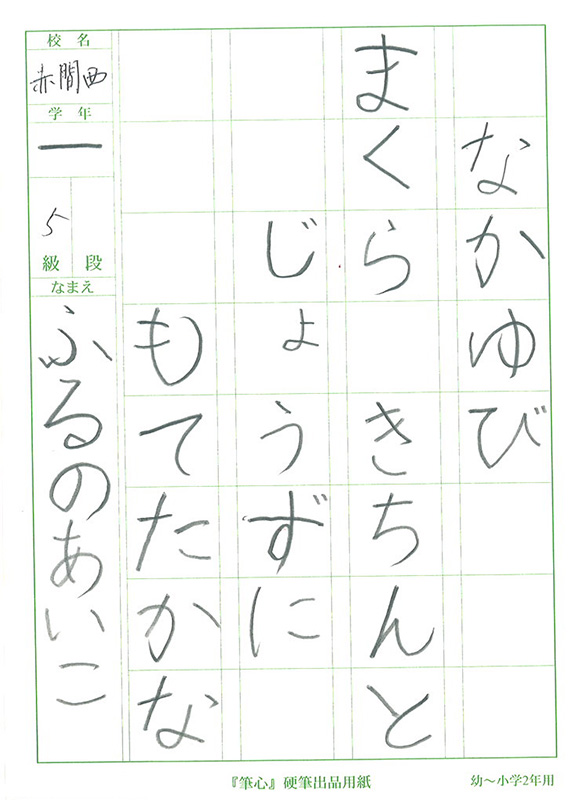 なかゆび
まくら きちんと
じょうずに
もてたかな
校名
赤間西
学年
一
5
級 段
なまえ
ふるのあいこ
『筆心』硬筆出品用紙
幼〜小学2年用